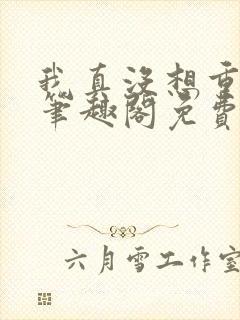 我真没想重
笔趣阁免费
六月雪工作室